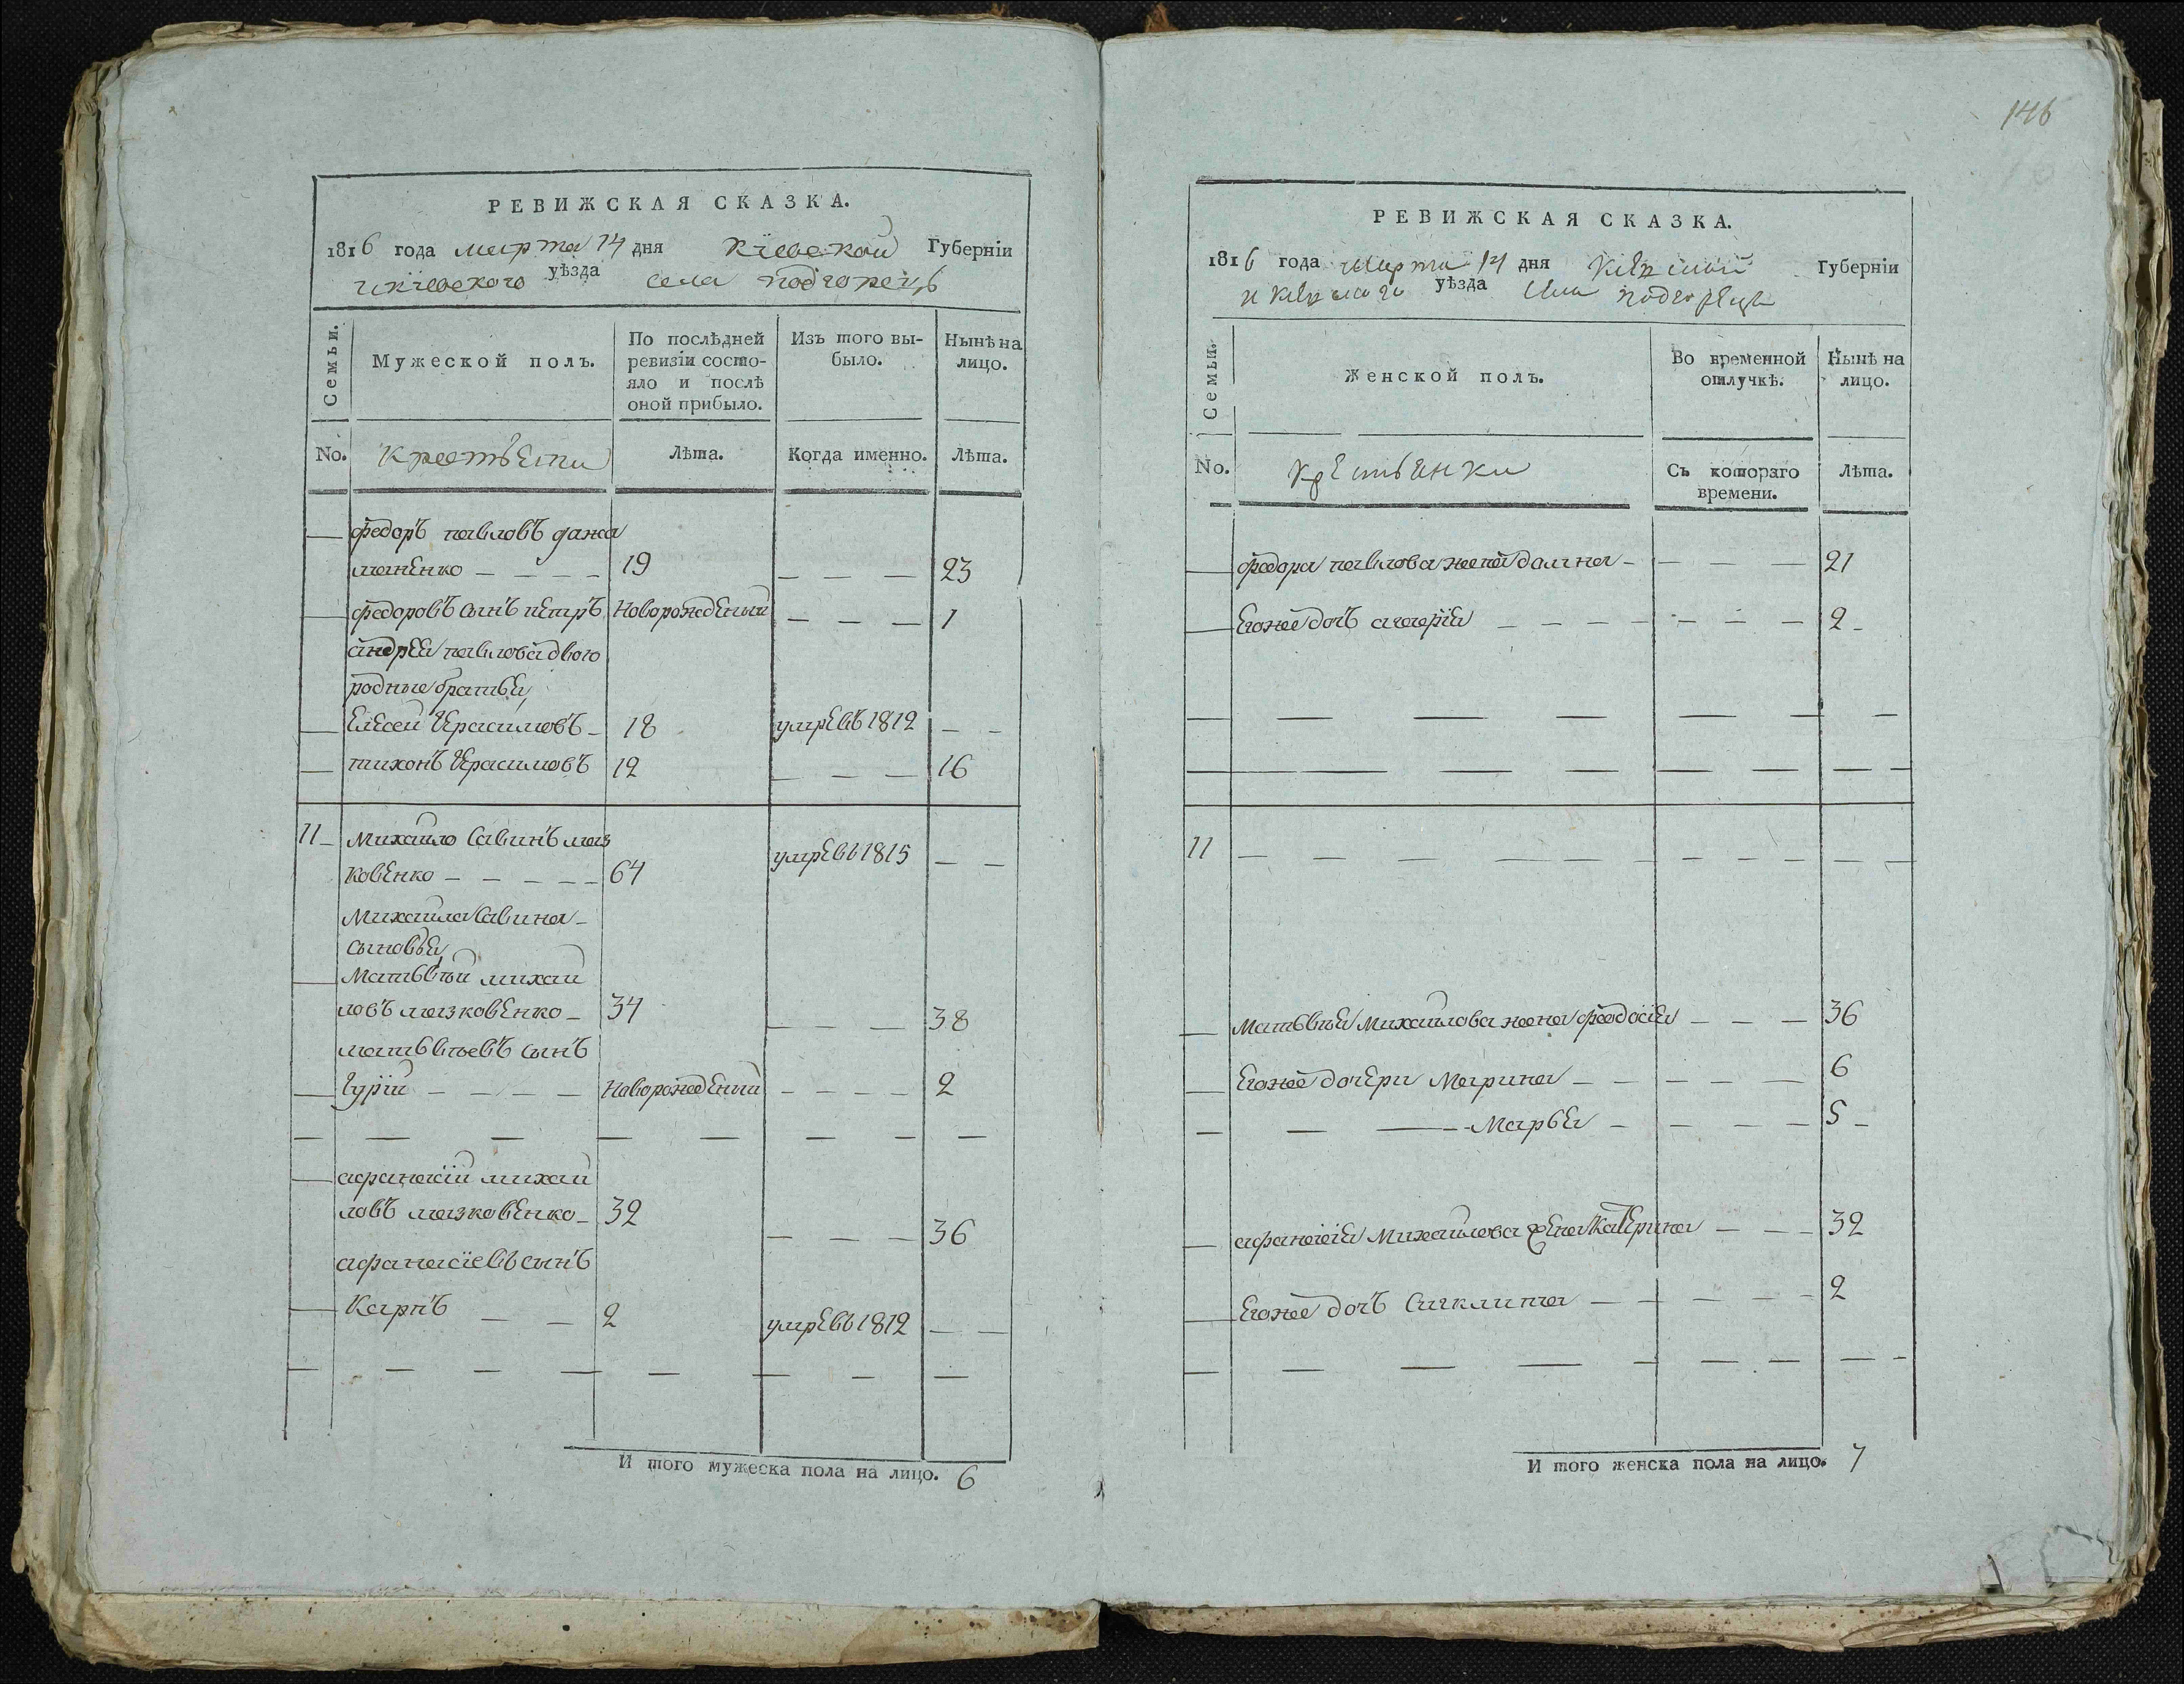 146
РЕВИЖСКАЯ СКАЗКА.
1816 года марта 14 дня Кіевской Губерніи
и кіевского уѣзда села подгорецъ
Семьи.
Мужеской полъ.
По послѣдней ревизіи состояло и послѣ оной прибыло.
Изъ того выбыло.
Нынѣ на лицо.
No. Крестьяни Лѣта. Когда именно. Лѣта.
федоръ павловъ
— — — — 19 — — — 23
федоровъ сынъ петръ Новорожденый — — — 1
андрея павлова двою
родные братья
Елисей Герасимовъ — 18 умре въ 1812 — —
тихонъ Герасимовъ 12 — — — 16
11 — Михайло Савинъ маз
ковенко — — — — — 64 умре въ 1815 — —
Михаила Савина —
сыновья
Матьвѣй михай
ловъ мазковенко — 34 — — — 38
матьвѣевъ сынъ
Гурій — — — — Новорожденый — — — — 2
афанасій михай
ловъ мазковенко — 32 — — — 36
афанасіевъ сынъ
Карпъ — — 2 умре въ 1812 — —
И того мужеска пола на лицо. 6
РЕВИЖСКАЯ СКАЗКА.
1816 года марта 14 дня Кіевской Губерніи
и Кіевского уѣзда села подгорецъ
Семьи.
Женской полъ.
Во временной отлучкѣ.
Нынѣ на лицо.
No. Крестьянки Съ котораго времени. Лѣта.
федора павлова жена домна — — — — 21
Егоже дочь — — — — — — — 2 —
11 — — — — — — — — — —
Матьвѣя Михайлова жена феодосія — — — 36
Егоже дочери Марина — — — — — 6
— — — Марья — — — — — 5 —
афанасія Михайлова жена Катерина — — — 32
Егоже дочь — — — — — 2
И того женска пола на лицо. 7